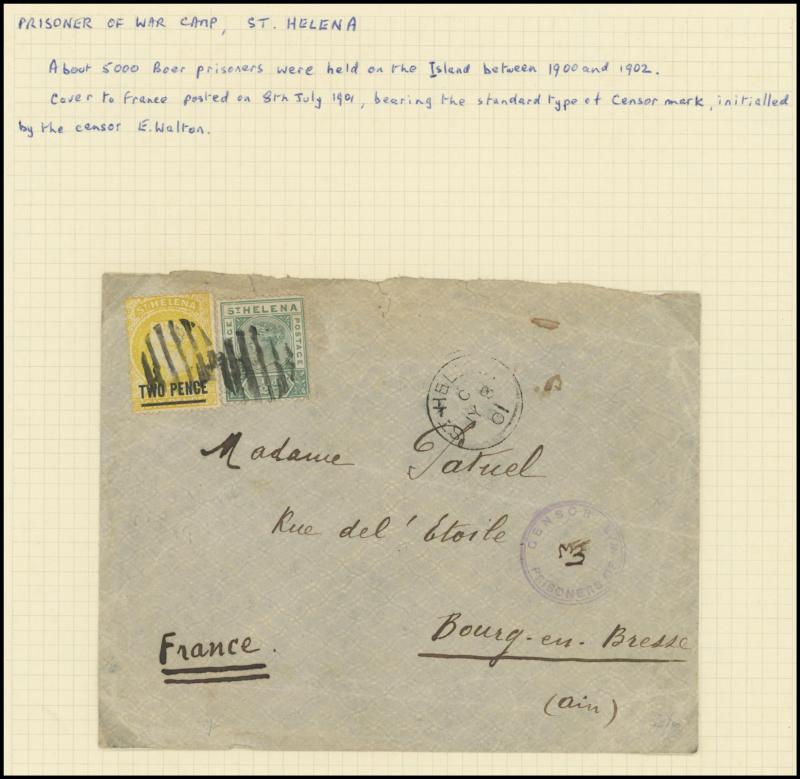 PRISONER OF WAR CAMP, ST. HELENA
About 5000 Boer prisoners were held on the Island between 1900 and 1902.
Cover to France posted on 8th July 1901, bearing the standard type of Censor mark, initialled
by the censor E. Walton.
ST HELENA
TWO PENCE
ST HELENA
POSTAGE
ST. HEL
C
JY 8
01
Madame
Rue de l'Etoile
CENSOR
PRISONERS OF
Bourg-en-Bresse
France.
(Ain)